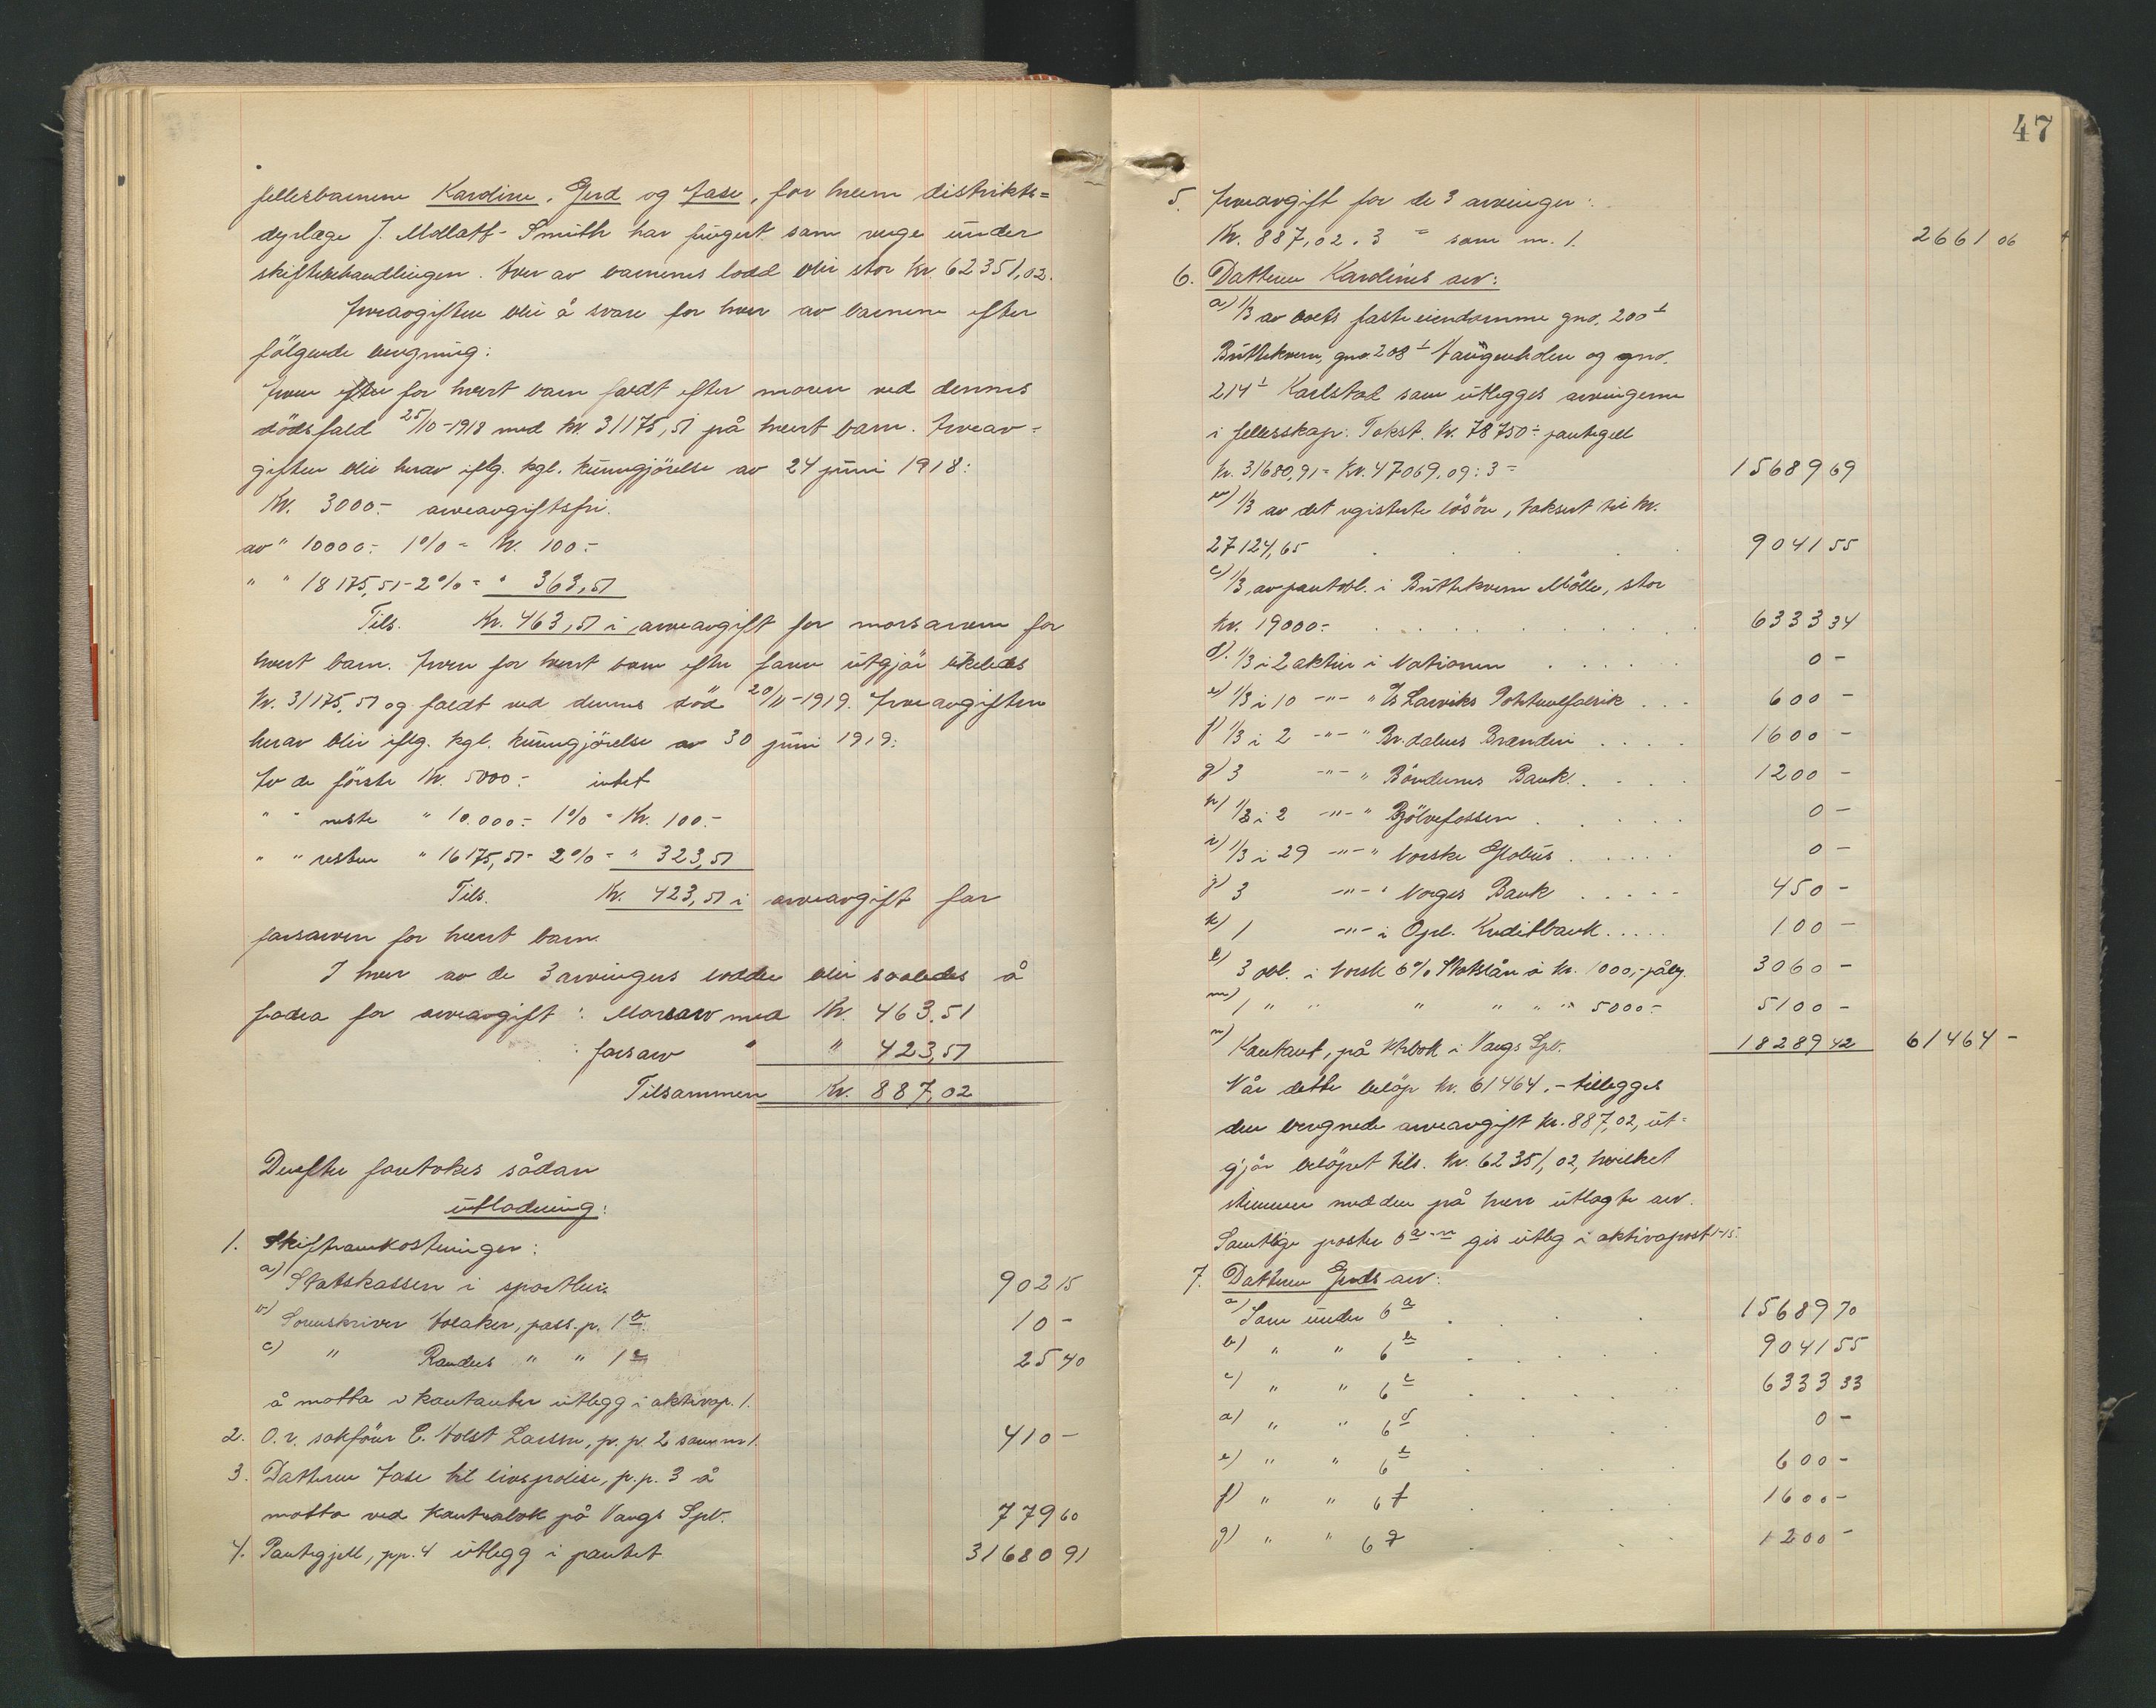 fellesbarnene Kardine, Gerd og Aase, for hvem distrikts=
dyrlæge J. Mollatt-Smith har fungert som verge under
skiftebehandlingen. Hver av barnenes lodd blir stor kr. 62351,02.
Arveavgiften blir å svare for hver av barnene efter
følgende beregning:
Arven efter for hvert barn faldt efter moren ved dennes
dödsfald 25/10-1918 med kr. 31175,51 på hvert barn. Arveav-
giften blir herav iflg. kgl. kunngjörelse av 24 juni 1918:
Kr. 3000.- arveavgiftsfri.
av " 10000.- 1% = Kr. 100.-
" " 18175,51 - 2% = " 363,51
Tils. Kr. 463,51 i arveavgift for morsarven for
hvert barn. Arven for hvert barn efter faren utgjör likeledes
kr. 31175,51 og faldt ved dennes död 20/11-1919. Arveavgiften
herav blir iflg. kgl. kunngjörelse av 30 juni 1919:
Av de förste Kr. 5000.- intet
" " neste " 10.000.- 1% = Kr. 100.-
" " resten " 16175,51 - 2% = " 323,51
Tils. Kr. 423,51 i arveavgift for
farsarven for hvert barn.
I hver av de 3 arvingers lodder blir saaledes å
fradra for arveavgift: Morsarv med Kr. 463.51
farsarv " " 423,51
Tilsammen Kr. 887,02
Derefter foretokes sådan
utlodning:
1. Skifteomkostninger:
a) Statskassen i sportler 902 15
b) Sorenskriver Aolaker, pass.p. 1b 10 -
c) " Randers " " 1c 25 40
å motta i kontanter utlegg i aktivap. 1.
2. O.r. sakförer C. Holst Larsen, p.p. 2 som nr 1. 410 -
3. Datteren Aase til livspolise, p.p. 3 å
motta ved kontrabok på Vangs Spb. 779 60
4. Pantegjell, pp. 4 utlegg i pantet 31680 91
47
5. Arveavgift for de 3 arvinger:
Kr. 887,02 . 3 = som nr. 1. 2661 06
6. Datteren Kardines arv:
a) 1/3 av boets faste eiendomme gnr. 200 1
Büttekvern, gnr 208 1 Haugenholen og gnr.
214 1 Karlstad som utlegges arvingerne
i fellesskap. Takst. kr. 78750 ÷ pantegell
kr. 31680,91 = Kr. 47069.09 : 3 = 15689 69
b) 1/3 av det registrerte lösöre, taksert til kr.
27124,65 9041 55
c) 1/3 av pantobl. i Büttekvern Mölle, stor
kr. 19000.- 6333 34
d) 1/3 i 2 aktier i Nationen 0 -
e) 1/3 i 10 -"- " A/S Larviks Potetmelfabrik 600 -
f) 1/3 i 2 -"- " Br.dalens Brænderi 1600 -
g) 3 -"- " Böndernes Bank 1200 -
h) 1/3 i 2 -"- " Bjölvefossen 0 -
i) 1/3 i 29 -"- " Norske Globus 0 -
j) 3 -"- " Norges Bank 450 -
k) 1 -"- i Opl. Kreditbank 100 -
l) 3 obl. i Norsk 6% Statslån à kr. 1000,- pålyd. 3060 -
m) 1 " " " " " " 5000.- 5100 -
n) Kontant, på k.bok i Vangs Spb. 18289 42 61464 -
Når dette belöp kr. 61464.- tillegges
den beregnede arveavgift kr. 887,02, ut-
gjör belöpet tils. kr. 62351,02, hvilket
stemmer med den på hver utlagte arv.
Samtlige poster 6 a-n gis utleg i aktivapost 1-15.
7. Datteren Gerds arv:
a) Som under 6 a 15689 70
b) " " 6 b 9041 55
c) " " 6 c 6333 33
d) " " 6 d 0 -
e) " " 6 e 600 -
f) " " 6 f 1600 -
g) " " 6 g 1200 -